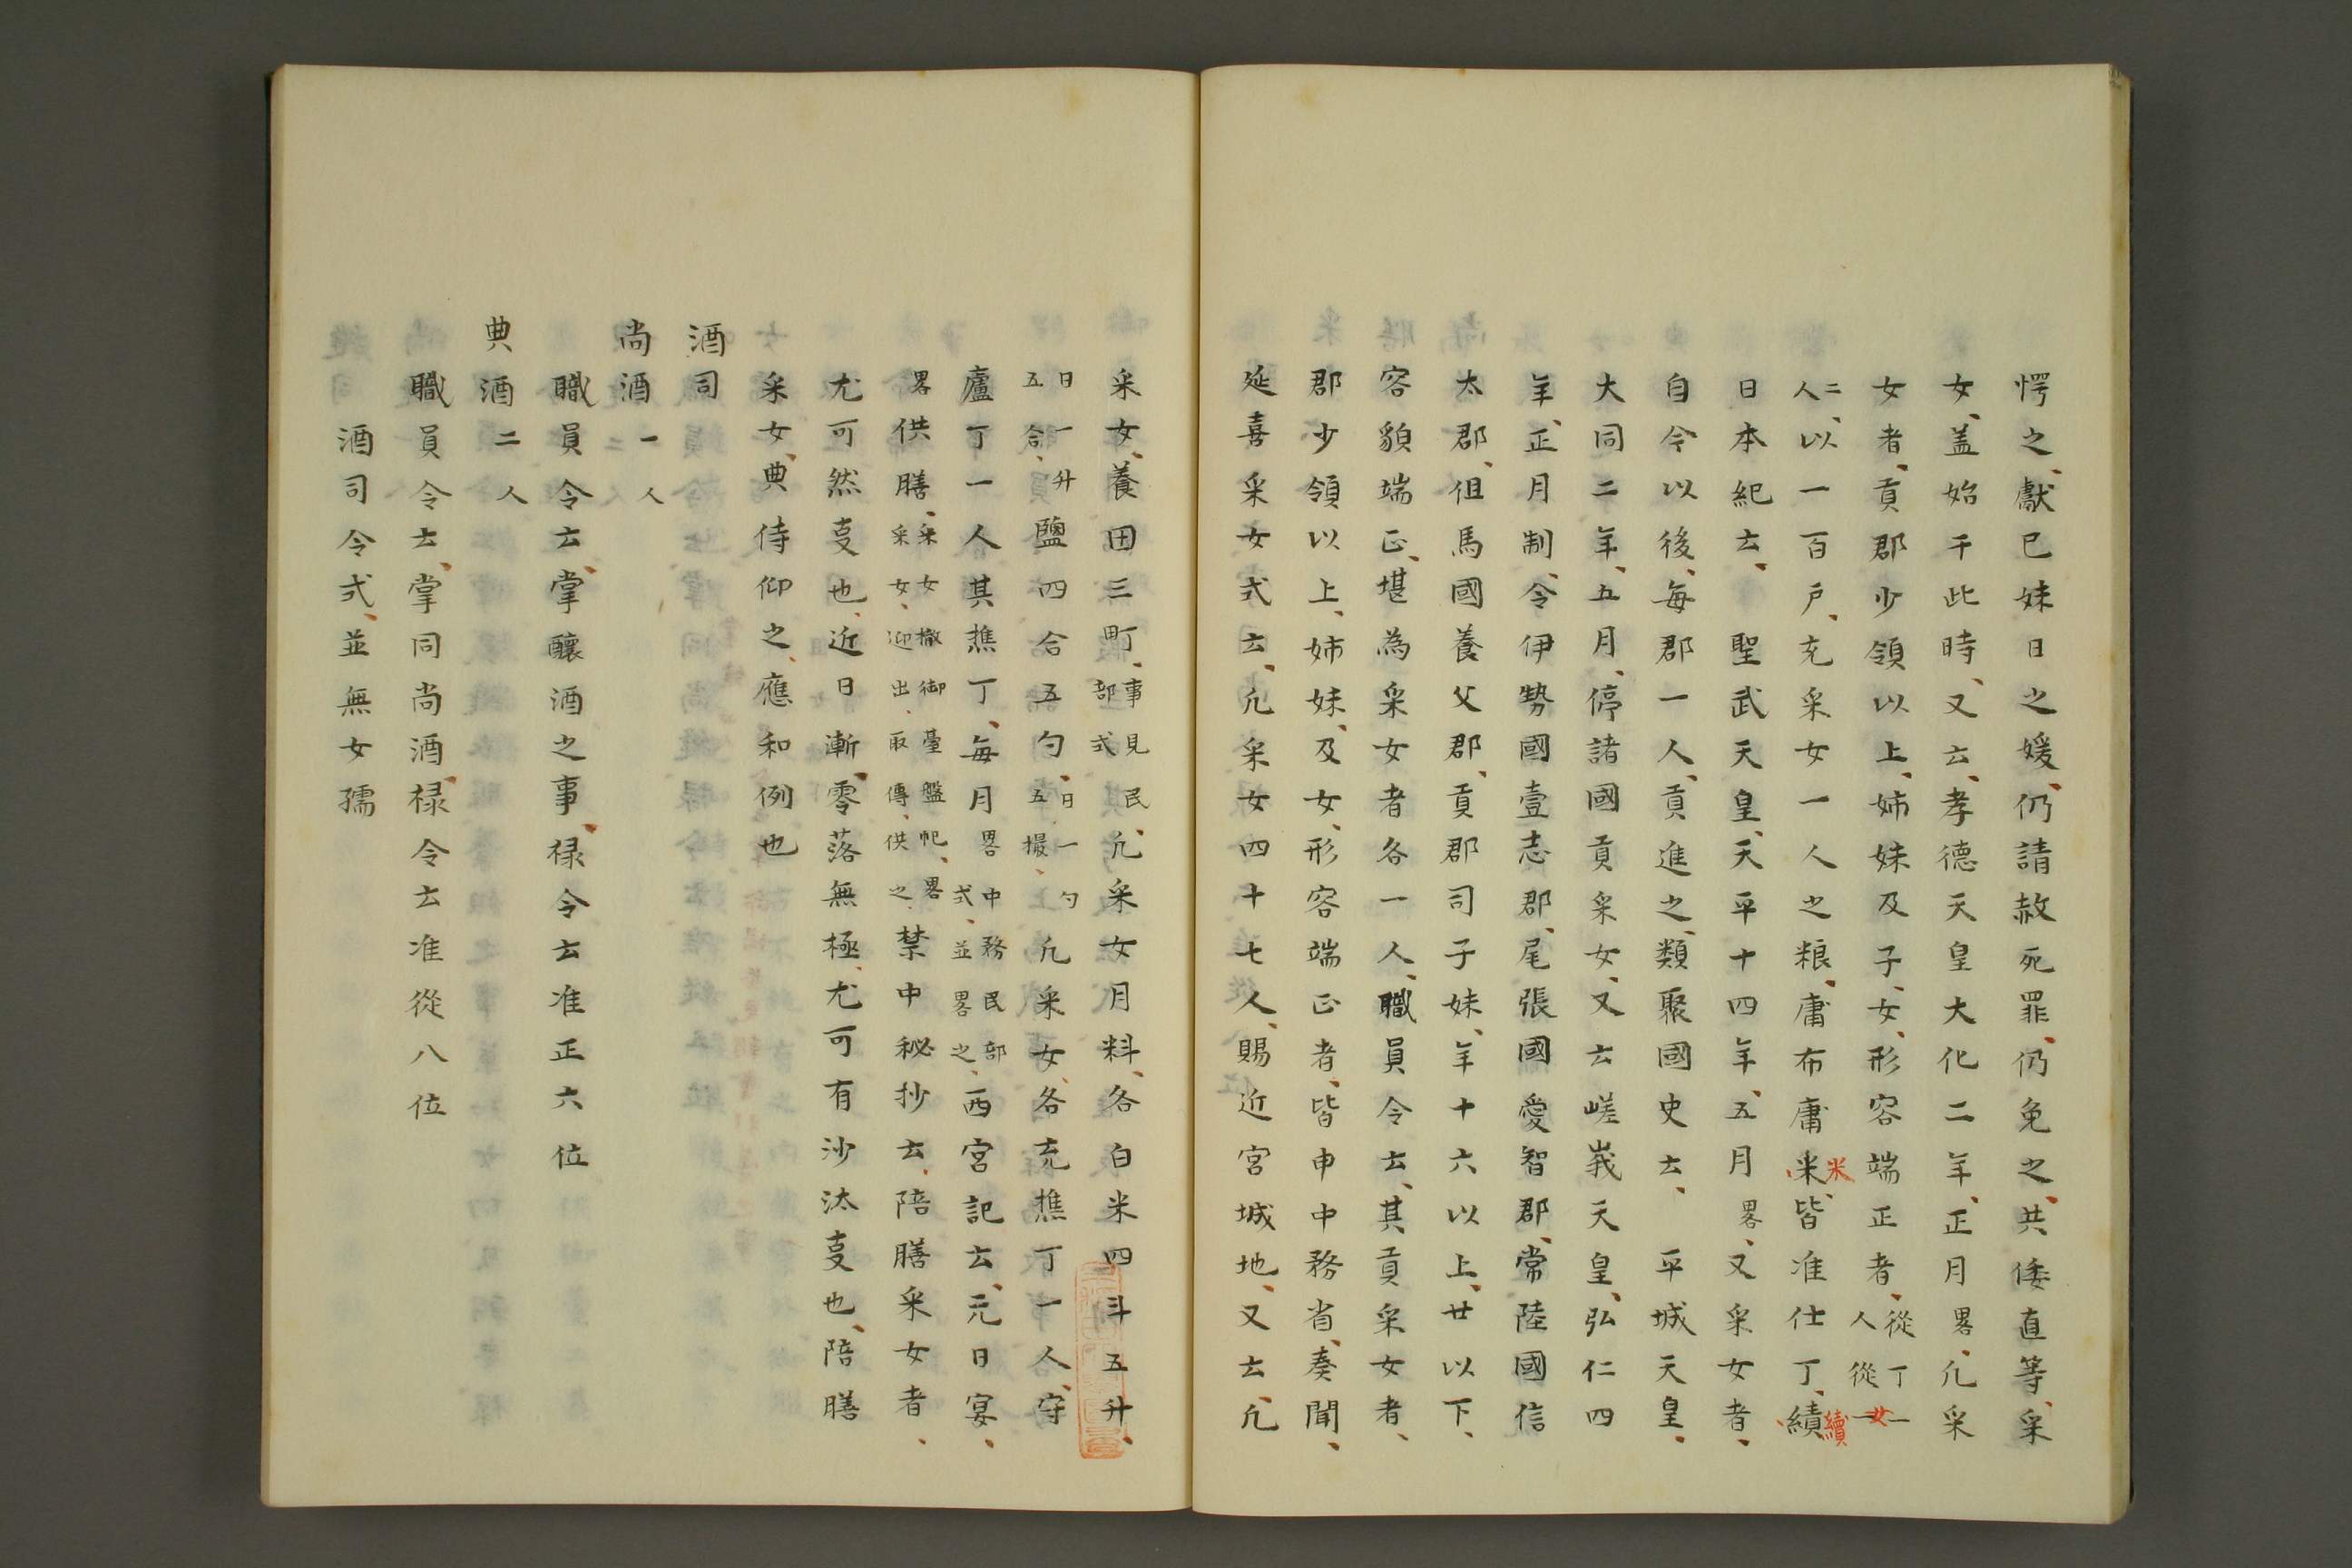 愕之、獻已妹日之媛、仍請赦死罪、仍免之、共倭直等、采
女、盖始于此時、又云、孝德天皇大化二年、正月畧、凢采
女者、貢郡少領以上、姉妹及子、女、形容端正者、從丁一人從女一
二人、以一百戸、充采女一人之粮、庸布庸釆米皆准仕丁、績續
日本紀云、聖武天皇、天平十四年、五月畧、又采女者、
自令以後、每郡一人、貢進之、類聚國史云、平城天皇、
大同二年、五月、停諸國貢采女、又云嵯峩天皇、弘仁四
年、正月制、令伊勢國壹志郡、尾張國愛智郡、常陸國信
太郡、但馬國養父郡、貢郡司子妹、年十六以上、廿以下、
容貌端正、堪為采女者各一人、職員令云、其貢采女者、
郡少領以上、姉妹、及女、形容端正者、皆申中務省、奏聞、
延喜采女式云、凢采女四十七人、賜近宮城地、又云、凢
采女、養田三町、事見民部式、凢采女月料、各白米四斗五升、
日一升五合、鹽四合五勺、日一勺五撮、凢采女、各充樵丁一人、守
廬丁一人其樵丁、每月畧中務民部式、並畧之、西宮記云、元日宴、
畧供膳、采女撤御臺盤帊、畧采女、迎出、取傳、供之、禁中秘抄云、陪膳采女者、
尤可然㕝也、近日漸、零落無極、尤可有沙汰㕝也、陪膳
采女、典侍仰之、應和例也
酒司
尚酒一人
職員令云、掌釀酒之事、禄令云准正六位
典酒二人
職員令云、掌同尚酒、禄令云准從八位
酒司令式、並無女孺